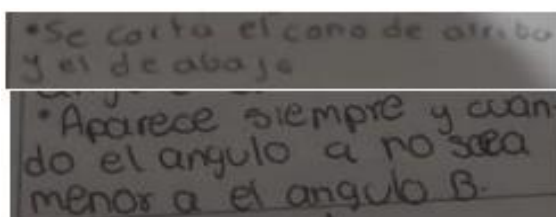 •Se corta el cono de arriba
y el de abajo
•Aparece siempre y cuan
do el angulo a no sea
menor a el angulo B.